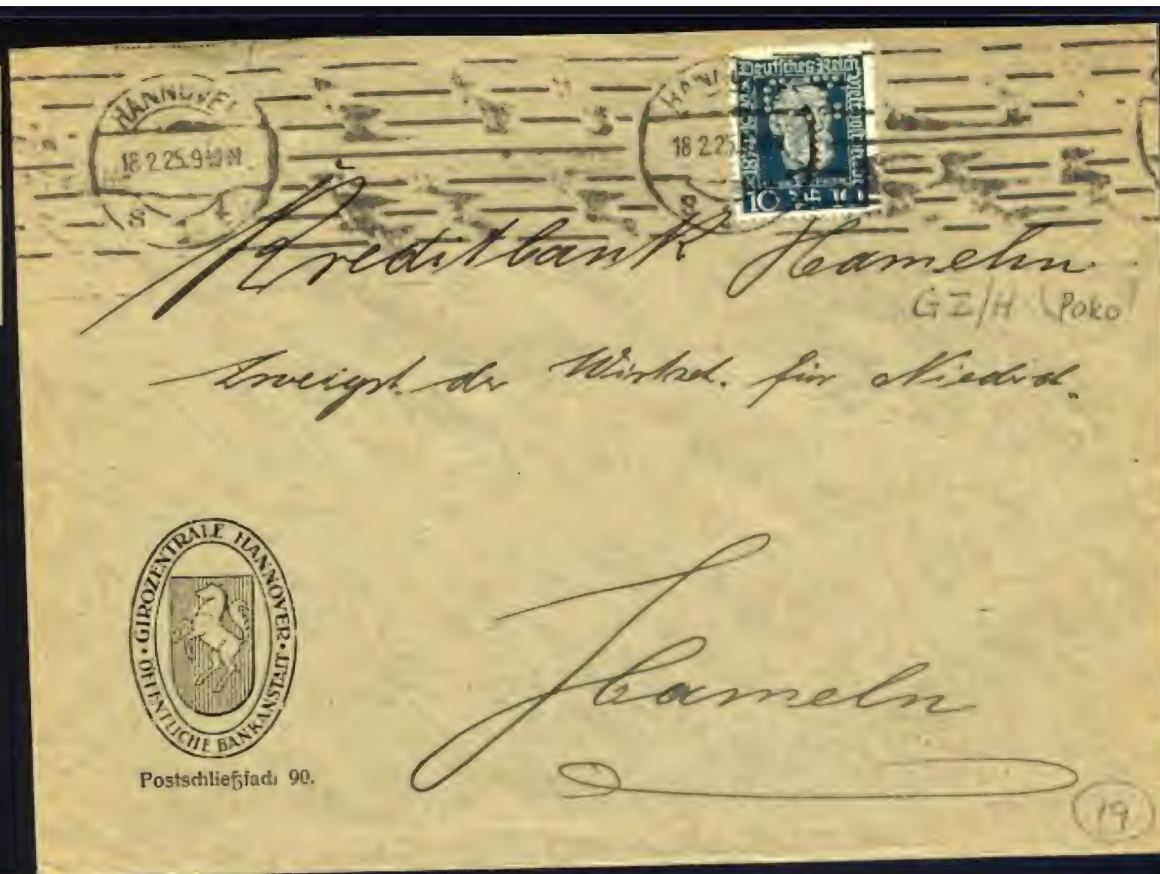 HANNOVER
18.2.25.9
HANN
18 2 25
Deutsches Reich
10
Kreditbank Hameln
GZ/H Poko
Zweigst. der Wirtsch. für Niedersa.
Hameln
GIROZENTRALE HANNOVER
ÖFFENTLICHE BANKANSTALT
Postschließfach 90.
19